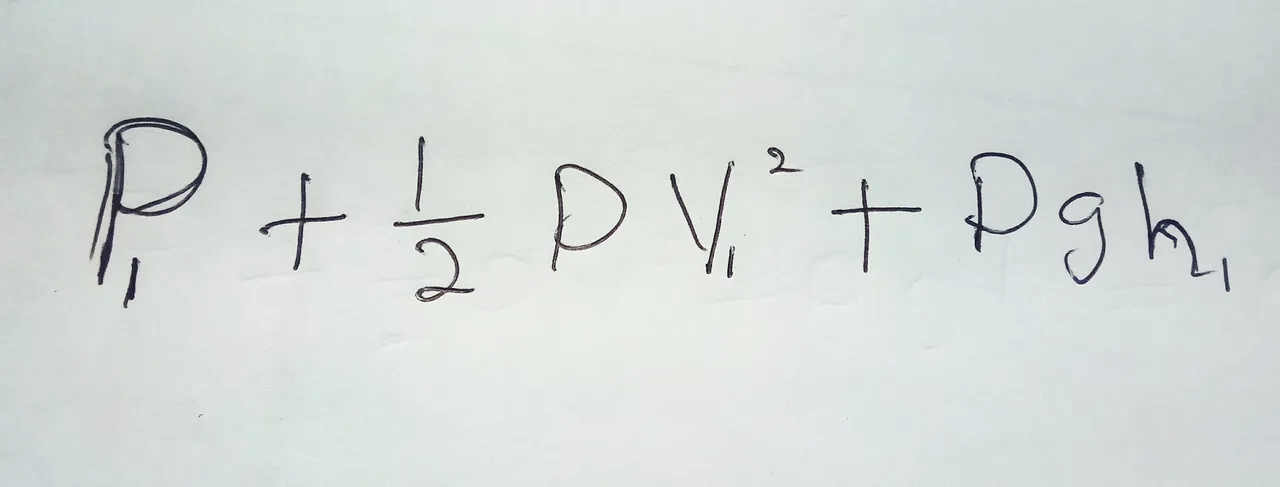 P₁ + 1/2 ρV₁² + ρgh₁